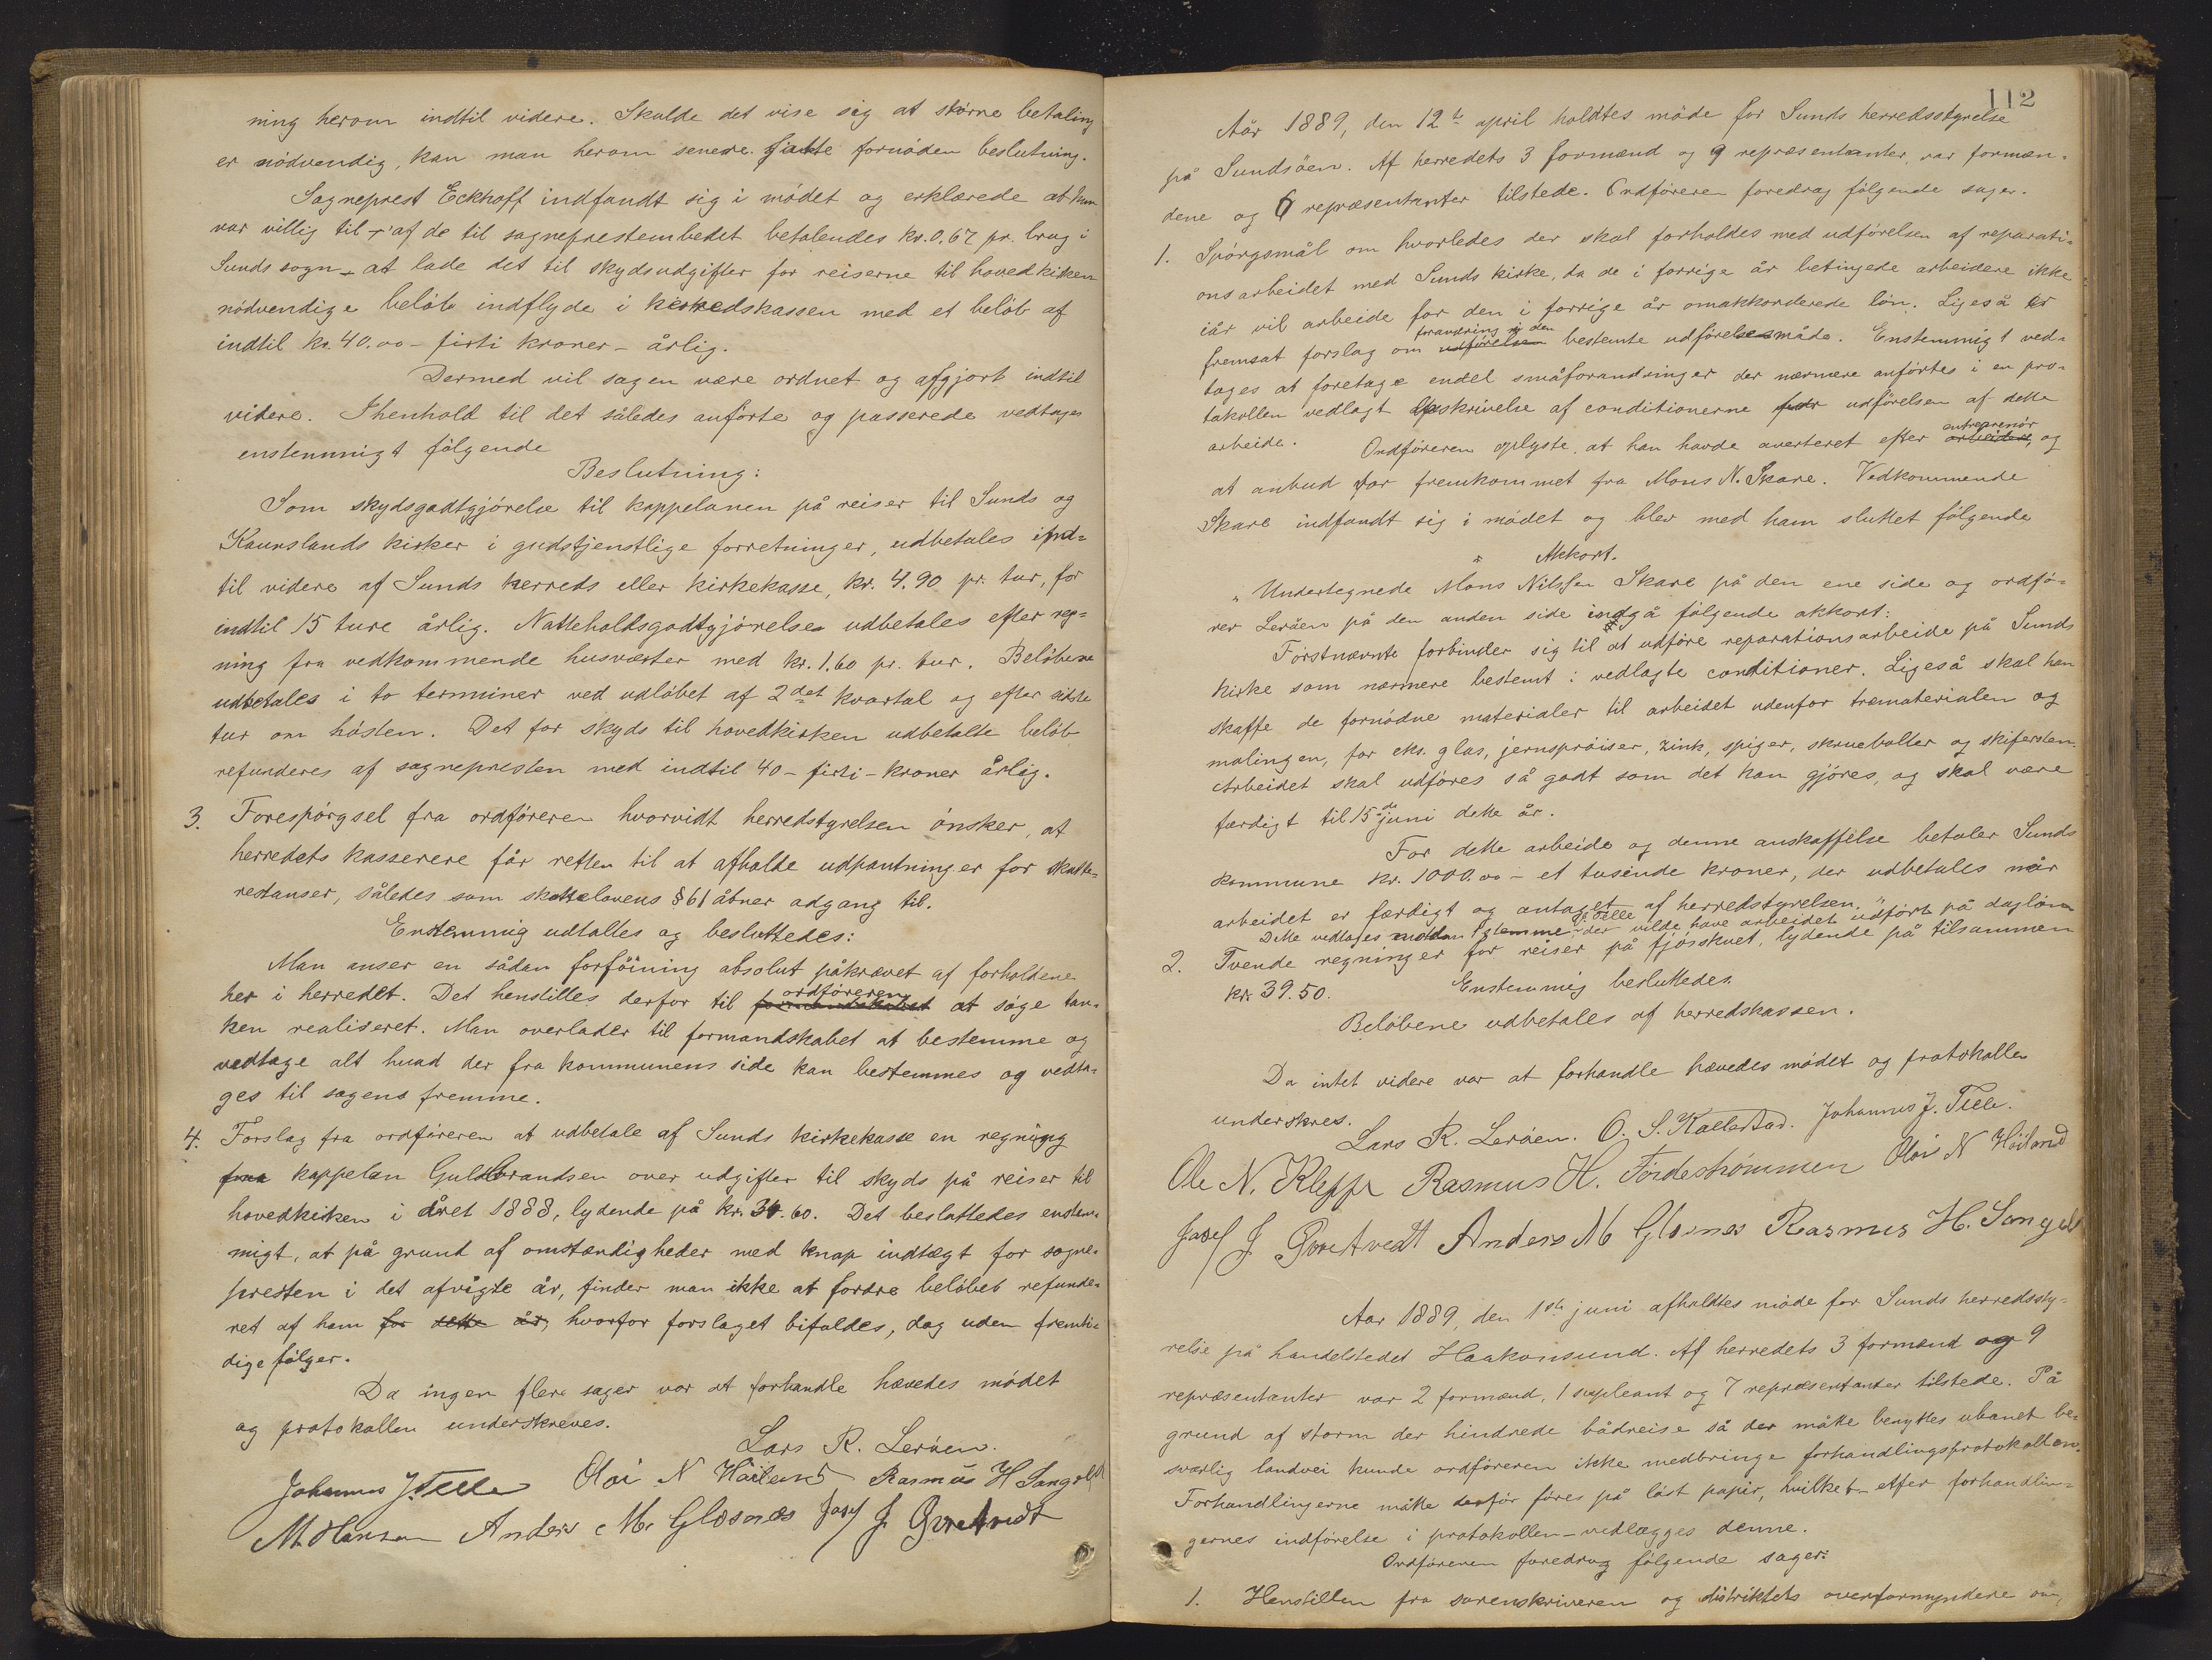 ning herom indtil videre. Skulde det vise sig at större betaling
er nödvendig, kan man herom senere fatte fornöden beslutning.
Sogneprest Eckhoff indfandt sig i mödet og erklærede at han
var villig til - af de til sogneprestembedet betalendes kr. 0.67 pr. brug i
Sunds sogn - at lade det til skydsudgifter for reiserne til hovedkirken
nödvendige belöb indflyde i herredskassen med et belöb af
indtil kr. 40.00 - firti kroner - årlig.
Dermed vil sagen være ordnet og afgjort indtil
videre. I henhold til det således anförte og passerede vedtages
enstemmigt fölgende
Beslutning:
Som skydsgodtgjörelse til kappelanen på reiser til Sunds og
Kaurslands kirker i gudstjenstlige forretninger, udbetales ind=
til videre af Sunds herreds eller kirkekasse, kr. 4.90 pr. tur, for
indtil 15 ture årlig. Natteholdsgodtgjörelse udbetales efter reg=
ning fra vedkommende husværter med kr. 1.60 pr. tur. Belöbene
udbetales i to terminer ved udlöbet af 2det kvartal og efter sidste
tur om hösten. Det for skyds til hovedkirken udbetalte belöb
refunderes af sognepresten med indtil 40 - firti - kroner årlig.
3. Forespörgsel fra ordföreren hvorvidt herredstyrelsen önsker, at
herredets kasserere får retten til at afholde udpantninger for skatte=
restanser, således som skattelovens § 61 åbner adgang til.
Enstemmig udtaltes og besluttedes:
Man anser en sådan forföining absolut påkrævet af forholdene
her i herredet. Det henstilles derfor til formandskabet ordföreren at söge tan=
ken realiseret. Man overlader til formandskabet at bestemme og
vedtage alt hvad der fra kommunens side kan bestemmes og vedta=
ges til sagens fremme.
4. Forslag fra ordföreren at udbetale af Sunds kirkekasse en regning
fra kappelan Guldbrandsen over udgifter til skyds på reiser til
hovedkirken i året 1888, lydende på kr. 34.60. Det besluttedes enstem=
migt, at på grund af omstændigheder med knap indtægt for sogne=
presten i det afvigte år, finder man ikke at fordre belöbet refunde=
ret af ham for dette år, hvorfor forslaget bifaldes, dog uden fremti=
dige fölger.
Da ingen flere sager var at forhandle hævedes mödet
og protokollen underskreves.
Lars R. Leröen.
Johannes J. Telle Oloi N Höiland Rasmus H Sangolt
M. Hansen Anders M. Glesnes Josef J. Qvretvedt
112
Aar 1889, den 12te april holdtes möde for Sunds herredsstyrelse
på Sundsöen. Af herredets 3 formænd og 9 repræsentanter, var formæn=
dene og 6 repræsentanter tilstede. Ordföreren foredrag fölgende sager.
1. Spörgsmål om hvorledes der skal forholdes med udförelsen af reparati=
onsarbeidet med Sunds kirke, da de i forrige år betingede arbeidere ikke
iår vil arbeide for den i forrige år omakkorderede lön. Ligeså er
fremsat forslag om udförelsen forandring i den bestemte udförelsesmåde. Enstemmigt ved=
tages at foretage endel småforandringer der nærmere anförtes i en pro=
tokollen vedlagt beskrivelse af conditionerne for udförelsen af dette
arbeide. Ordföreren oplyste, at han havde averteret efter arbeidere entreprenör og
at anbud var fremkommet fra Mons N. Skare. Vedkommende
Skare indfandt sig i mödet og blev med ham sluttet fölgende
Akkort.
„Undertegnede Mons Nilssen Skare på den ene side og ordfö=
rer Leröen på den anden side indgå fölgende akkort:
Förstnævnte forbinder sig til at udföre reparationsarbeide på Sunds
kirke som nærmere bestemt i vedlagte conditioner. Ligeså skal han
skaffe de fornödne materialer til arbeidet udenfor trematerialen og
malingen, for eks. glas, jernspröiser, zink, spiger, skruebolter og skifersten.
Arbeidet skal udföres så godt som det kan gjöres, og skal være
færdigt til 15de juni dette år.
For dette arbeide og denne anskaffelse betaler Sunds
kommune kr. 1000.00 - et tusinde kroner, der udbetales når
arbeidet er færdigt og antaget af herredstyrelsen."
Dette vedtages mod en stemme - Telle - der vilde have arbeidet udfört på daglön
2. Tvende regninger for reiser på fjösskuet, lydende på tilsammen
kr. 39.50. Enstemmig besluttedes.
Belöbene udbetales af herredskassen.
Da intet videre var at forhandle hævedes mödet og protokollen
underskres.
Lars R. Leröen. O. S. Kallestad. Johannes J. Telle.
Ole N. Kleppe Rasmus H. Fördeströmmen Oloi N Höiland
Josef J Qvretvedt Anders M Glesnes Rasmus H. Sangolt
Aar 1889, den 1ste juni afholdtes möde for Sunds herredssty=
relse på handelstedet Haakonsund. Af herredets 3 formænd og 9
repræsentanter var 2 formænd, 1 supleant og 7 repræsentanter tilstede. På
grund af storm der hindrede bådreise så der måtte benyttes ubanet be=
sværlig landvei kunde ordföreren ikke medbringe forhandlingsprotokollen.
Forhandlingerne måtte derfor föres på löst papir, hvilket - efter forhandlin=
gernes indförelse i protokollen - vedlægges denne.
Ordföreren foredrog fölgende sager:
1. Henstillen fra sorenskriveren og distriktets overformyndere om,